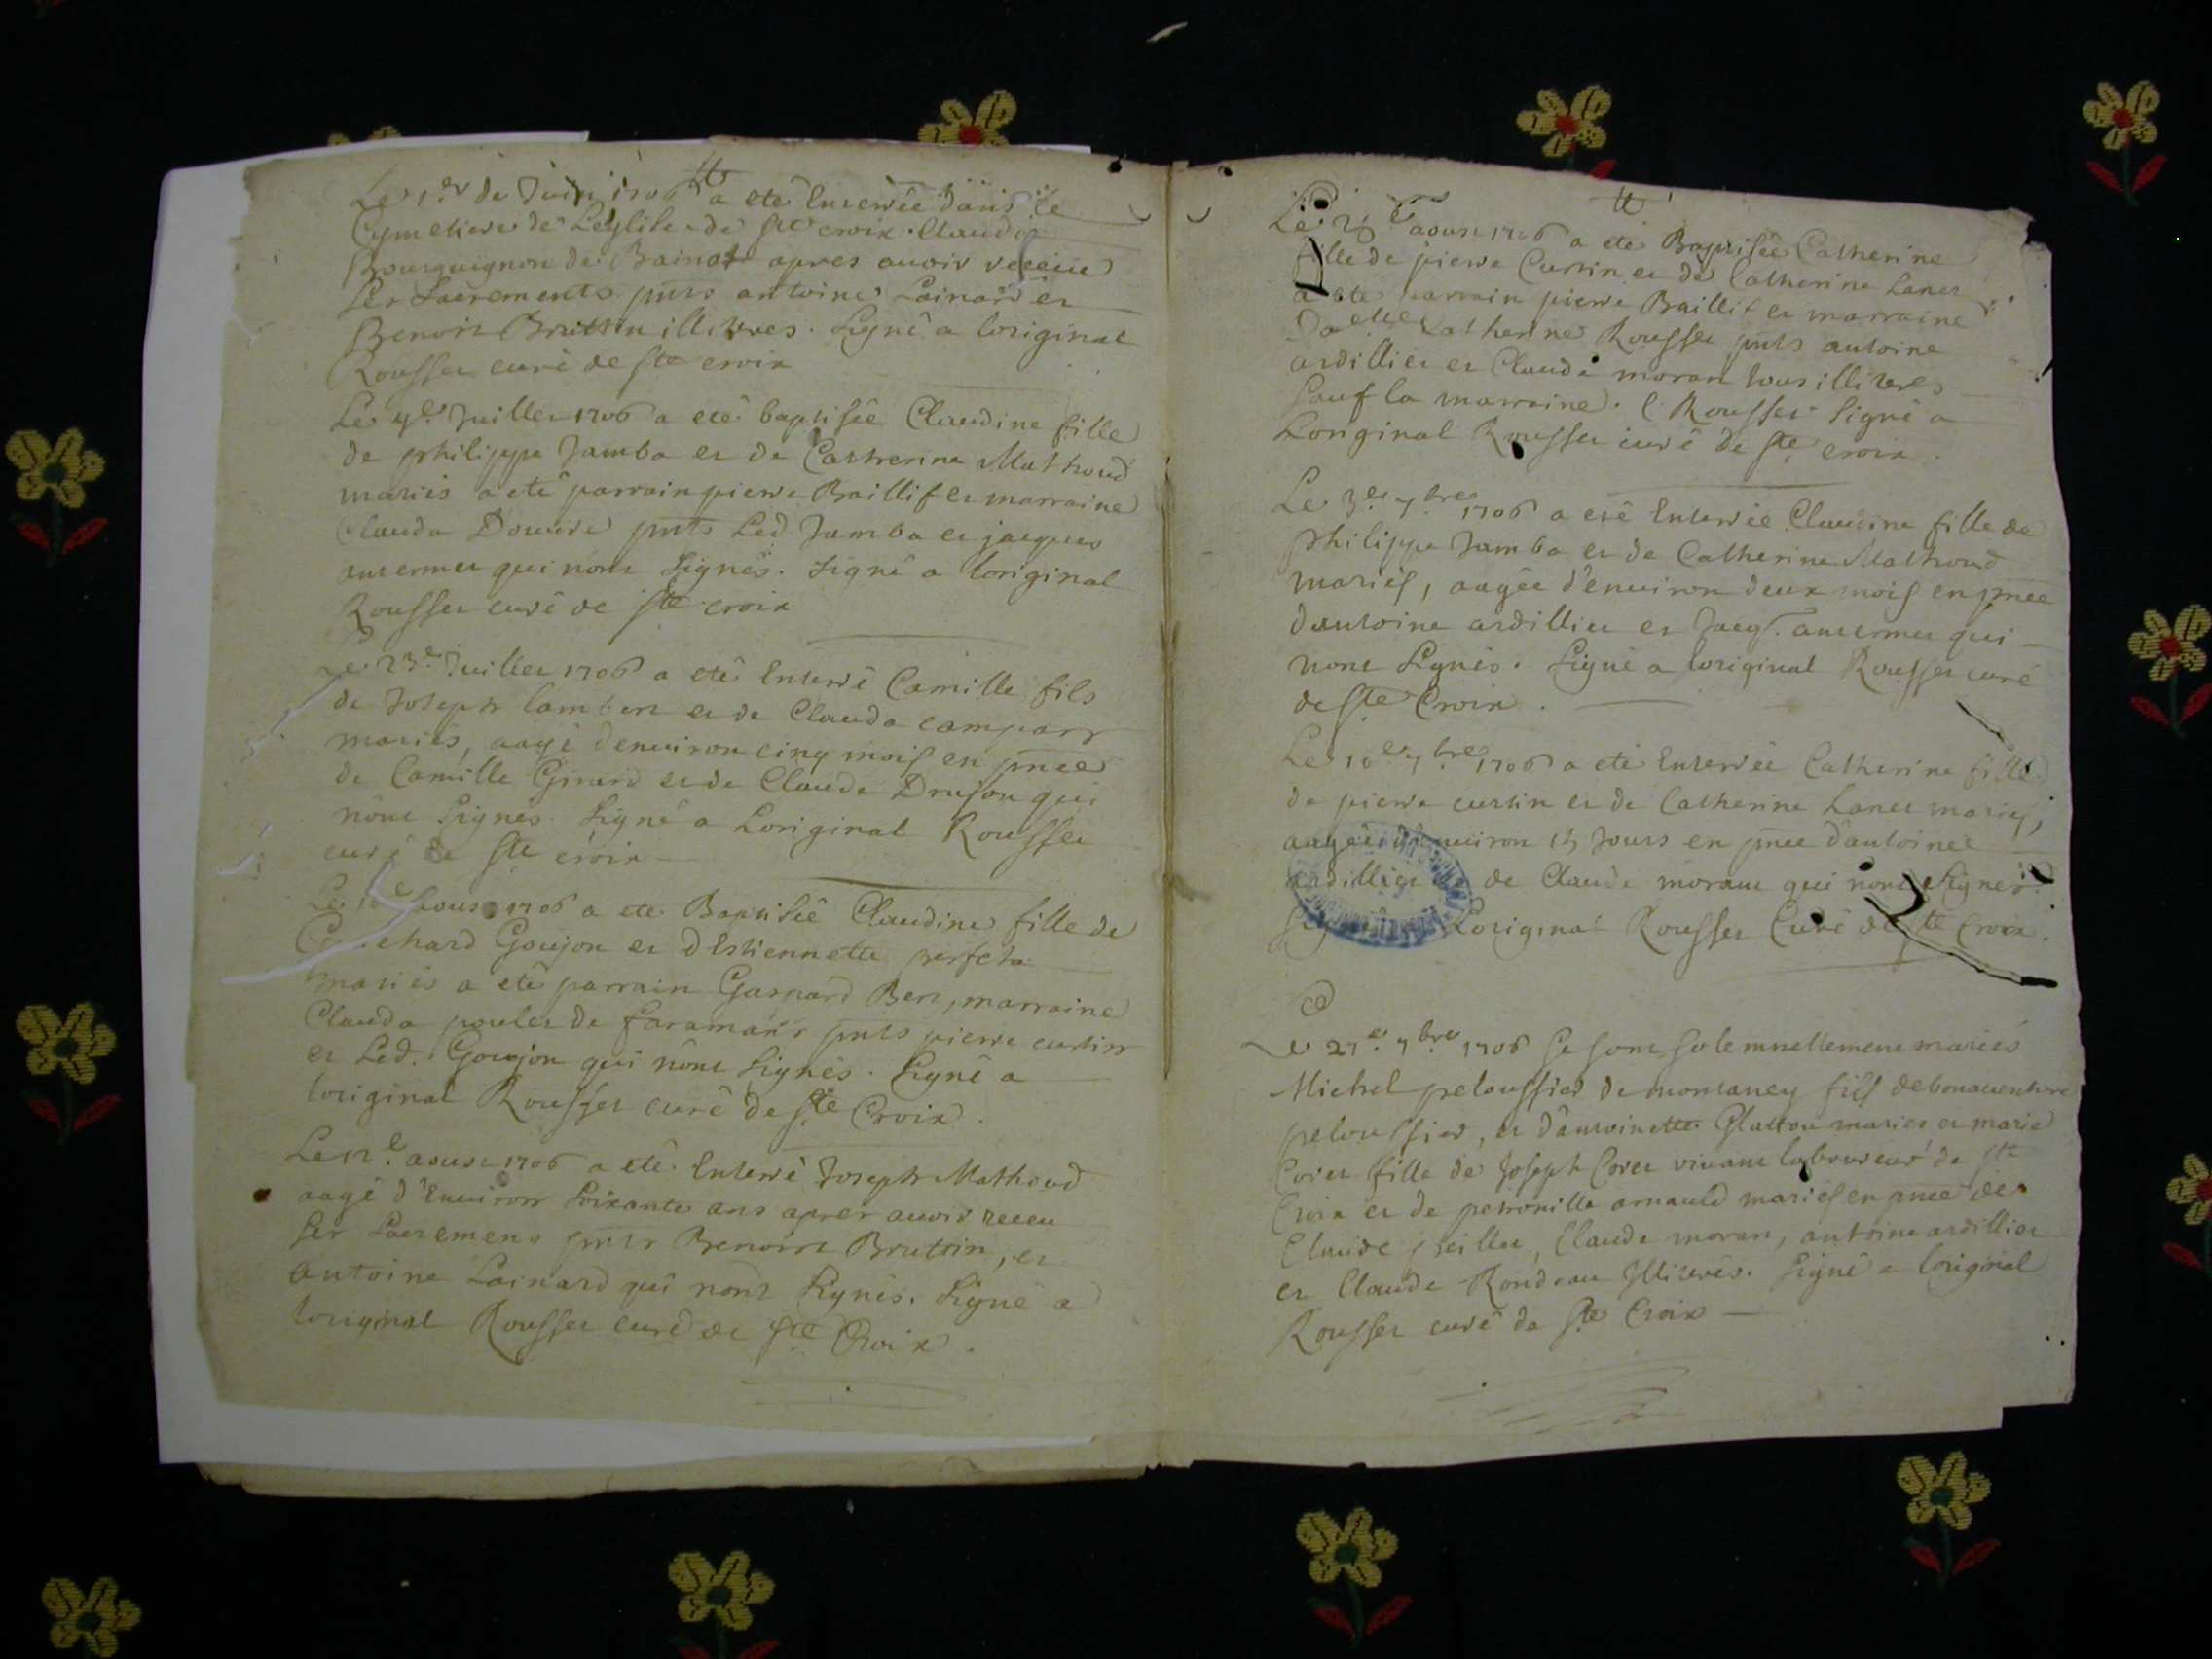 Le 1er de Juin 1706 a eté Enterrée dans le
Cymetiere de Leglise de ste croix Clauda
Bourguignon de Bainost apres auoir receue
ses Sacrements pnts antoine Lainard et
Benoit Bruttin illitéres. Signé a loriginal
Rousset curé de ste croix
Le 4e Juillet 1706 a eté baptisée Claudine fille
de philippe Jamba et de Catherine Mathoud
mariés a eté parrain pierre Baillif et marraine
Clauda Douure pnts Led. Jamba et jacques
ansermet qui nont Signés. Signé a loriginal
Rousset curé de ste croix
Le 23e Juillet 1706 a eté Enterré Camille fils
de Joseph lambert et de Clauda
mariés, aagé denuiron cinq mois en pnce
de Camille Girard et de Claude Drujon qui
nont Signés. Signé a Loriginal Rousset
curé de ste croix
Le aoust 1706 a eté Baptisée Claudine fille de
Goujon et dEstiennette
mariés a eté parrain Gaspard Bert, marraine
Clauda poulet de faramans pnts pierre curtin
et Led. Goujon qui nont Signés. Signé a
loriginal Rousset curé de Ste Croix.
Le 12e aoust 1706 a eté Enterré Joseph Mathoud
aagé d'Enuiron Soixante ans apres auoir receu
ses Sacrements pnts Benoist Bruttin, et
antoine Lainard qui nont Signés. Signé a
loriginal Rousset curé de Ste Croix.
Le aoust 1706 a eté Baptisée Catherine
fille de pierre Curtin et de Catherine Lanet
a eté parrain pierre Baillif et marraine
Catherine Rousset pnts antoine
ardillier et Claude moran tous illitéres
Sauf la marraine. C. Rousset Signé a
Loriginal Rousset curé de ste croix.
Le 3e 7bre 1706 a eté Enterrée Claudine fille de
philippe Jamba et de Catherine Mathoud
mariés, aagée d'enuiron deux mois en pnce
dantoine ardillier et Jacq. ansermet qui
nont Signés. Signé a loriginal Rousset curé
de ste Croix.
Le 10e 7bre 1706 a eté Enterrée Catherine fille
de pierre curtin et de Catherine Lanet mariés,
aagée d'enuiron 15 Jours en pnce d'antoine
ardillier et de Claude morant qui nont Signés.
Signé a Loriginal Rousset Curé de ste Croix.
Le 27e 7bre 1706 se sont solemnellement mariés
Michel peloussier de montaney fils de bonauenture
peloussier, et dantoinette Glatton mariés et marie
Coret fille de Joseph Coret viuant laboureur de ste
Croix et de petronille arnauld mariés en pnce de
Claude, Claude moran, antoine ardillier
et Claude Rondeau Illitérés. Signé a loriginal
Rousset curé de ste Croix